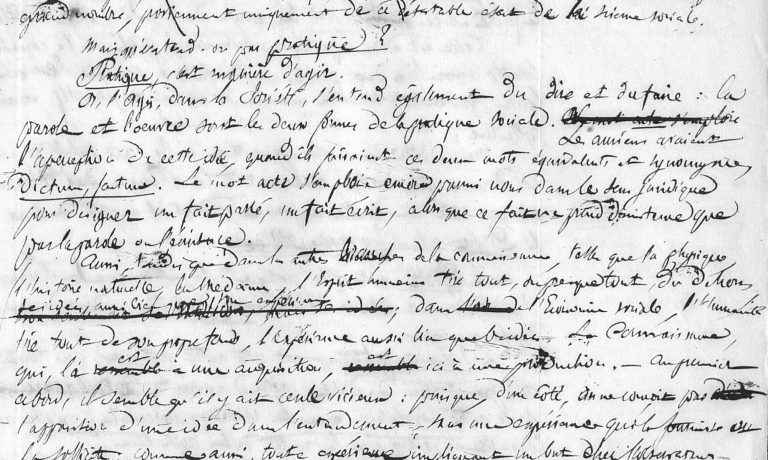 grand nombre, proviennent uniquement de ce détestable état de la science sociale.
Mais qu'entend-on par pratique?
Pratique, c'est manière d'agir.
Or, l'agir, dans la Société, s'entend également du dire et du faire : la
parole et l'oeuvre sont les deux formes de la pratique sociale.
Les anciens avaient
l'aperception de cette idée, quand ils faisaient ces deux mots équivalents et synonymes,
Dictum, factum. Le mot acte s'emploie encore parmi nous dans le sens juridique
pour désigner un fait passé, un fait écrit, alors que ce fait ne prend d'existence que
par la parole ou l'écriture.
Aussi, tandis que dans les autres de la connaissance, telle que la physique
l'histoire naturelle, l'Esprit humain tire tout, ou presque tout, du dehors,
ses idées, aussi bien que ; dans l'Economie sociale, l'Humanité
tire tout de son propre fonds, l'expérience aussi bien que l'idée. La Connaissance,
qui, là est une acquisition, est ici une production. — Au premier
abord, il semble qu'il y ait cercle vicieux : puisque, d'un côté, on ne conçoit pas
l'apparition d'une idée dans l'entendement, sans une expérience qui la
la sollicite, comme aussi, toute expérience impliquant un but chez l'observateur